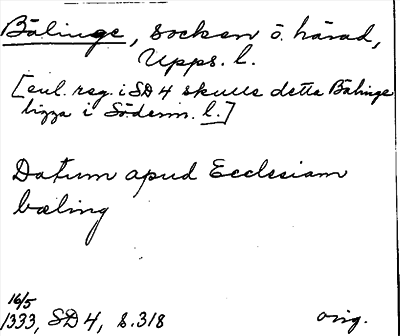 Bälinge, socken ö. härad,
Upps. l.
[enl. reg. i SD 4 skulle detta Bälinge
ligga i Söderm. l.]
Datum apud Ecclesiam
bæling
16/5
1333, SD 4, s. 318 orig.